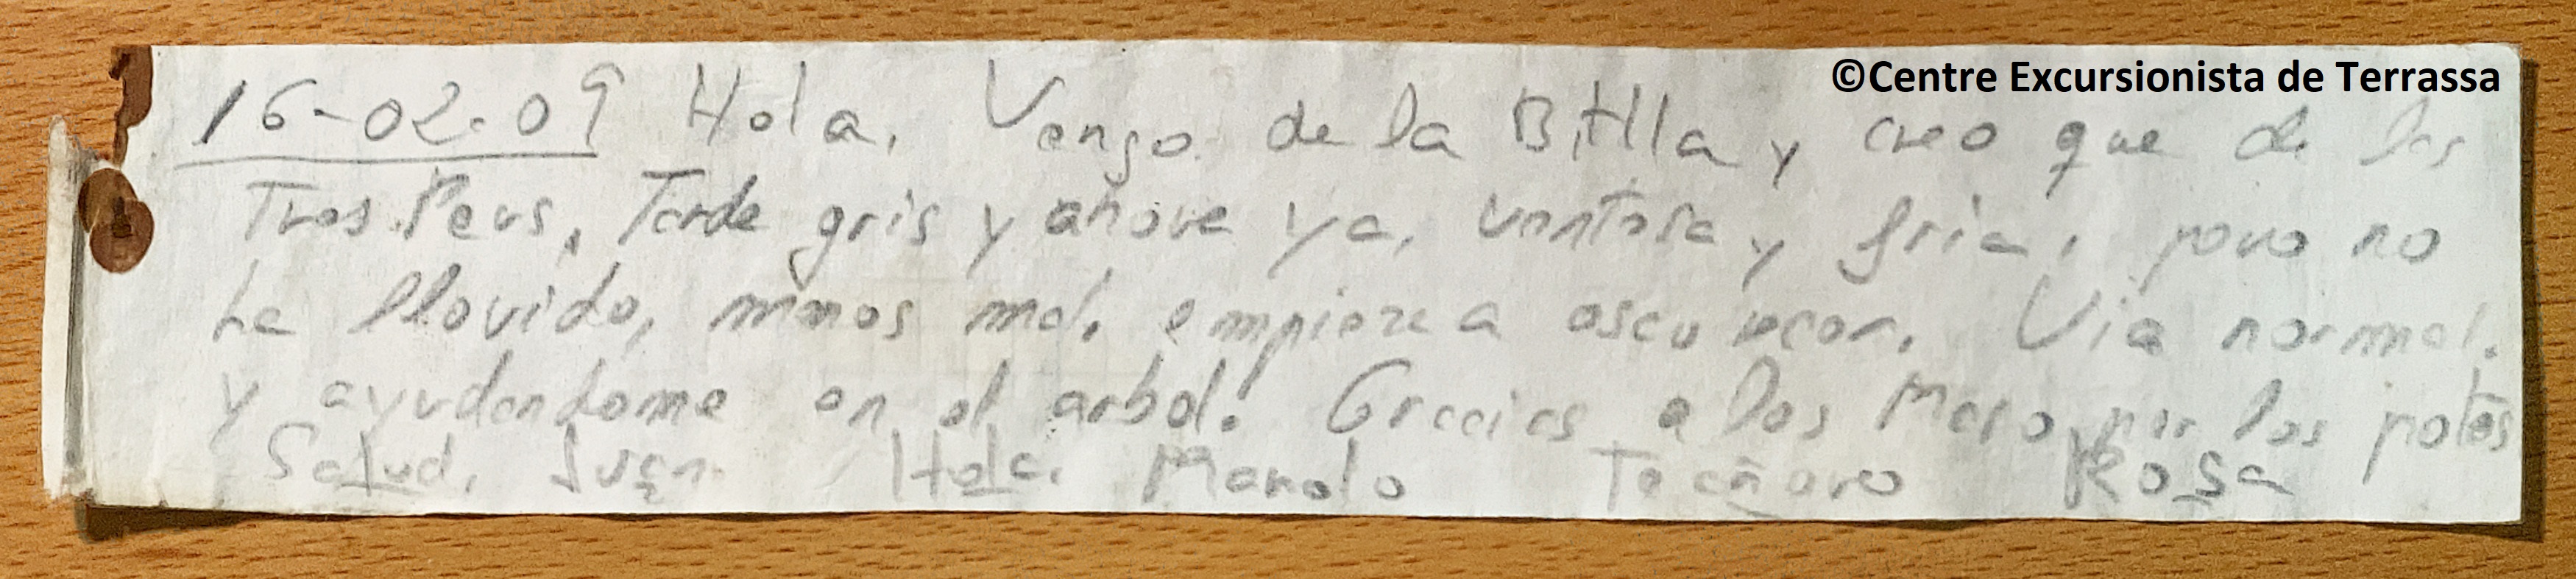 ©Centre Excursionista de Terrassa
16-02-09 Hola. Vengo de la Bitlla y creo que de los
Tres Peus. Tarde gris y ahora ya, ventosa y fría, pero no
ha llovido, menos mal. empieza a oscurecer. Via normal.
y ayudandome en el arbol! Gracias a los Maso por los potes
Salud. Juan. Hola. Manolo Rosa